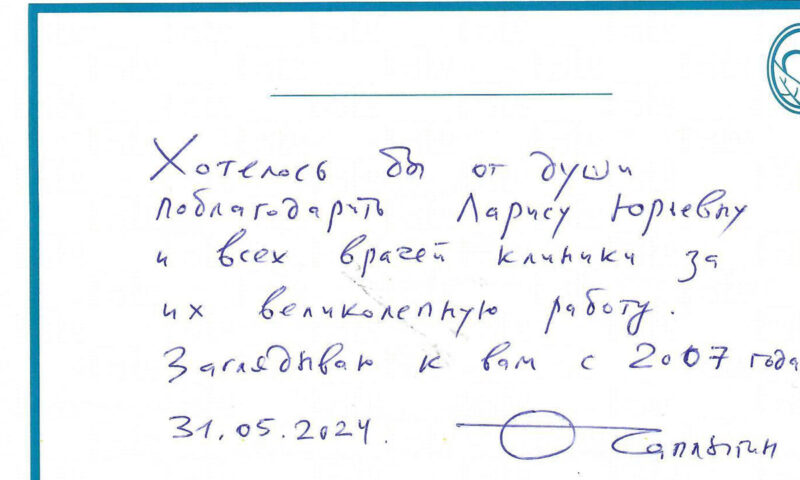 Хотелось бы от души
поблагодарить Ларису Юрьевну
и всех врачей клиники за
их великолепную работу.
Заглядываю к вам с 2007 года
31.05.2024.